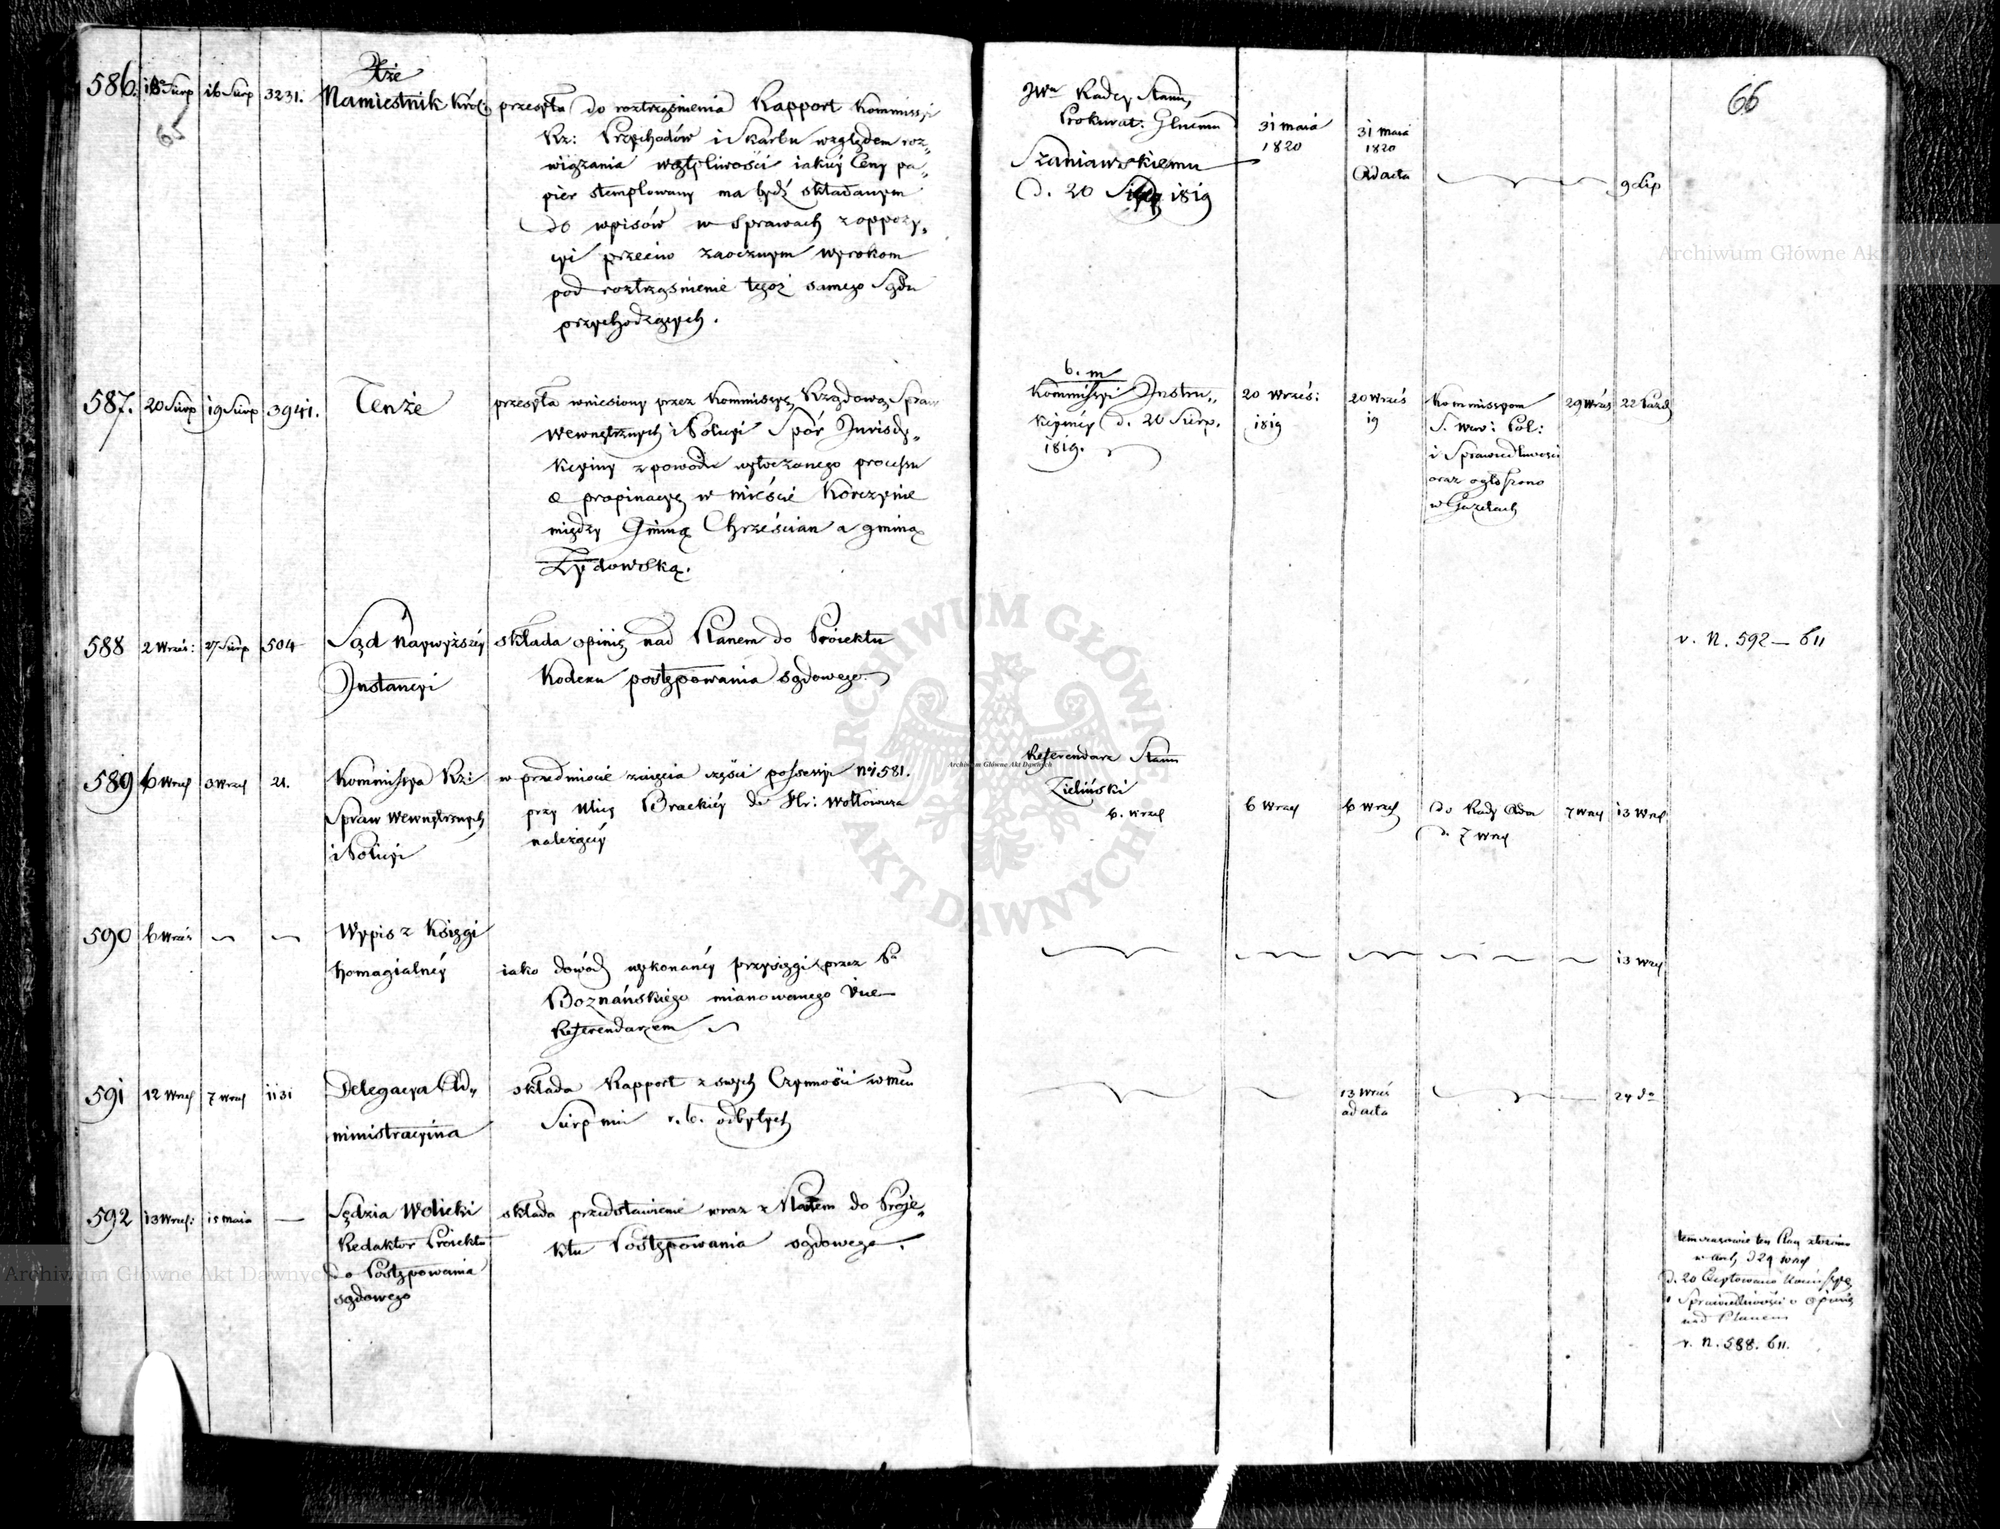 66
65
586. 18 Sierp 16 Sierp 3231. Xże
Namiestnik Król: przesyła do roztrząśnienia Rapport Kommissyi
Rz: Przychodów i Skarbu względem roz„
wiązania wątpliwości iakiey Ceny pa„
pier stemplowany ma bydź składanym
do wpisów w Sprawach z oppozy„
cyi przeciw zaocznym wyrokom
pod roztrząśnienie tegoż samego Sądu
przychodzących.
JWu Radcy Stanu,
Prokurat: Głnemu
Szaniawskiemu
d. 20 1819
31 maia
1820
31 maia
1820
Ad acta
9 Lip
587. 20 Sierp 19 Sierp 3941. Tenże
przesyła wniesiony przez Kommissyę Rządową Spraw
Wewnętrznych i Policyi Spór Jurisdy„
kcyiny z powodu wytoczonego processu
o propinacyę w mieście Korczynie
między Gminą Chrześcian a gminą
Żydowską.
6. m
Kommissyi Instru„
kcyiney d. 20 Sierp.
1819.
20 Wrześ:
1819
20 Wrześ
19
Kommissyom
S. Wew: Pol:
i Sprawiedliwości
oraz ogłoszono
w Gazetach
29 Wrześ 22 Paźd
588 2 Wrześ: 27 Sierp 504 Sąd Naywyższéy
Instancyi
składa opinię nad Planem do Proiektu
Kodexu postępowania sądowego.
v. N. 592 — 611
589 6 Wrześ 3 Wrześ 21. Kommissya Rz:
Spraw Wewnętrznych
i Policyi
w przedmiocie zaięcia części possessyi No 1581.
przy Ulicy Brackiéy do Hr: Wołłowicza
należącéy
Referendarz Stanu
Zieliński
6. Wrześ
6 Wrześ 6 Wrześ do Rady Adm
d. 7 Wrześ
7 Wrześ 13 Wrześ
590 6 Wrześ Wypis z Księgi
homagialnéy
iako dowód wykonanéy przysięgi przez P.
Boznańskiego mianowanego Vice
Referendarzem
13 Wrześ
591 12 Wrześ 7 Wrześ 1131 Delegacya Ad„
ministracyina
składa Rapport z swych Czynności w mcu
Sierpniu r. b. odbytych
13 Wrześ
ad acta
24 do
592 13 Wrześ: 15 maia — Sędzia Wolicki
Redaktor Proiektu
do Postępowania
sądowego
składa przedstawienie wraz z Planem do Proje„
ktu Postępowania sądowego.
temczasowie ten Plan złożono
w arch d 29 Wrześ
d. 20 Kommissyę
Sprawiedliwości o opinię
nad Planem
v. N. 588. 611.
Archiwum Główne Akt Dawnych
Archiwum Główne Akt Dawnych
Archiwum Główne Akt Dawnych
ARCHIWUM GŁÓWNE
AKT DAWNYCH